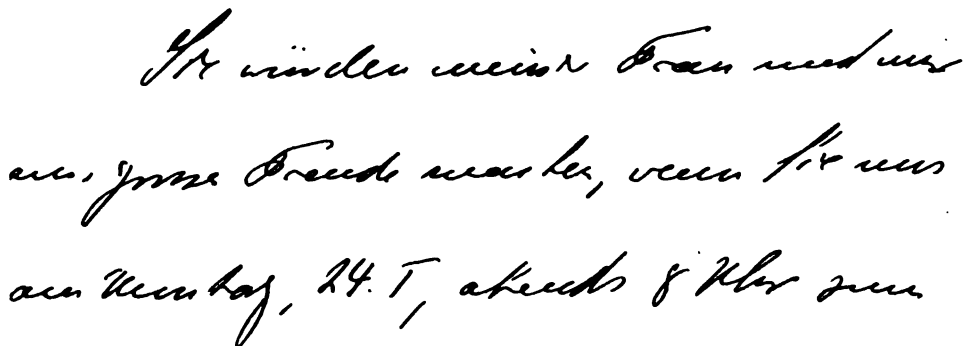 Sie würden meiner Frau und mir
eine grosse Freude machen, wenn Sie uns
am Montag, 24. I, abends 8 Uhr zum